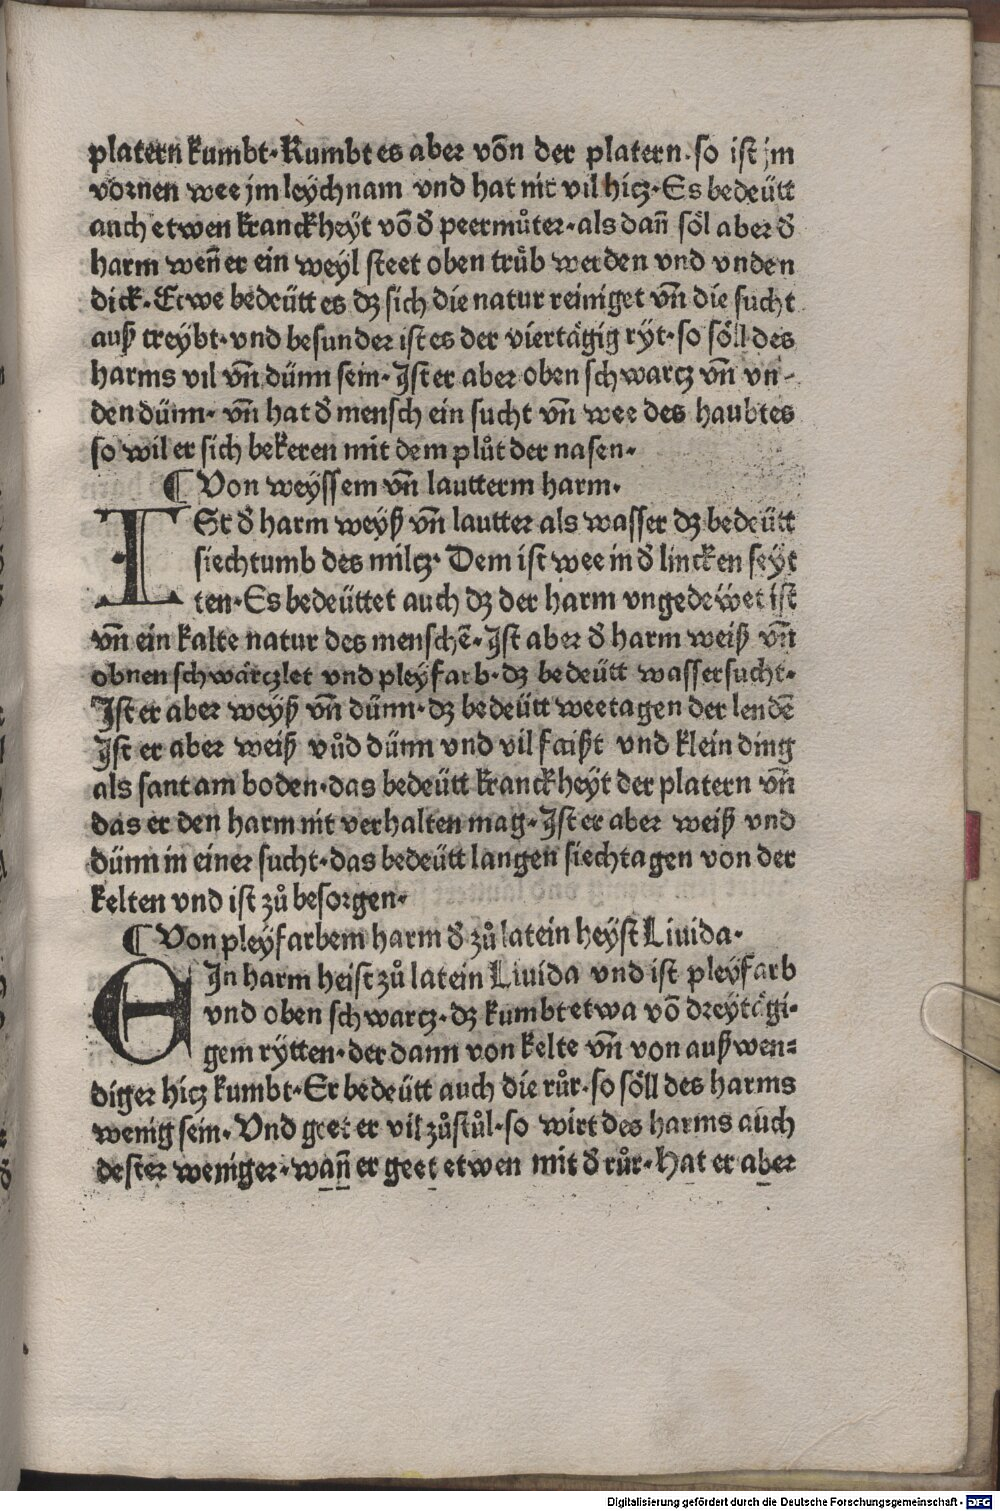 platern kumbt. Kumbt es aber võn der platern. so ist jm
vornen wee jm leychnam vnd hat nit vil hicz. Es bedeütt
auch etwen kranckheyt võ đ peermůter. als dañ söl aber đ
harm weñ er ein weyl steet oben trůb werden vnd vnden
dick. Etwe bedeütt es dz sich die natur reiniget vñ die sucht
auß treybt. vnd besunder ist es der viertägig ryt. so söll des
harms vil vñ dünn sein. Ist er aber oben schwarcz vñ vn-
den dünn. vñ hat đ mensch ein sucht vñ wee des haubtes
so wil er sich bekeren mit dem plůt der nasen.
¶ Von weyssem vñ lautterm harm.
ISt đ harm weyß vñ lautter als wasser dz bedeütt
siechtumb des milcz. Dem ist wee in đ lincken seyt
ten. Es bedeüttet auch dz der harm vngedewet ist
vñ ein kalte natur des menschẽ. Ist aber đ harm weiß vñ
obnen schwärczlet vnd pleyfarb. dz bedeütt wassersucht.
Ist er aber weyß vñ dünn. dz bedeütt weetagen der lendẽ
Ist er aber weiß vůd dünn vnd vil faißt vnd klein ding
als sant am boden. das bedeütt kranckheyt der platern vñ
das er den harm nit verhalten mag. Ist er aber weiß vnd
dünn in einer sucht. das bedeütt langen siechtagen von der
kelten vnd ist zů besorgen.
¶ Von pleyfarbem harm đ zů latein heyst Liuida.
EIn harm heist zů latein Liuida vnd ist pleyfarb
vnd oben schwarcz. dz kumbt etwa võ dreytägi-
gem rytten. der dann von kelte vñ von außwen-
diger hicz kumbt. Er bedeütt auch die růr. so söll des harms
wenig sein. Vnd geet er vil zůstůl. so wirt des harms auch
dester weniger. wañ er geet etwen mit đ růr. Hat er aber
Digitalisierung gefördert durch die Deutsche Forschungsgemeinschaft - DFG